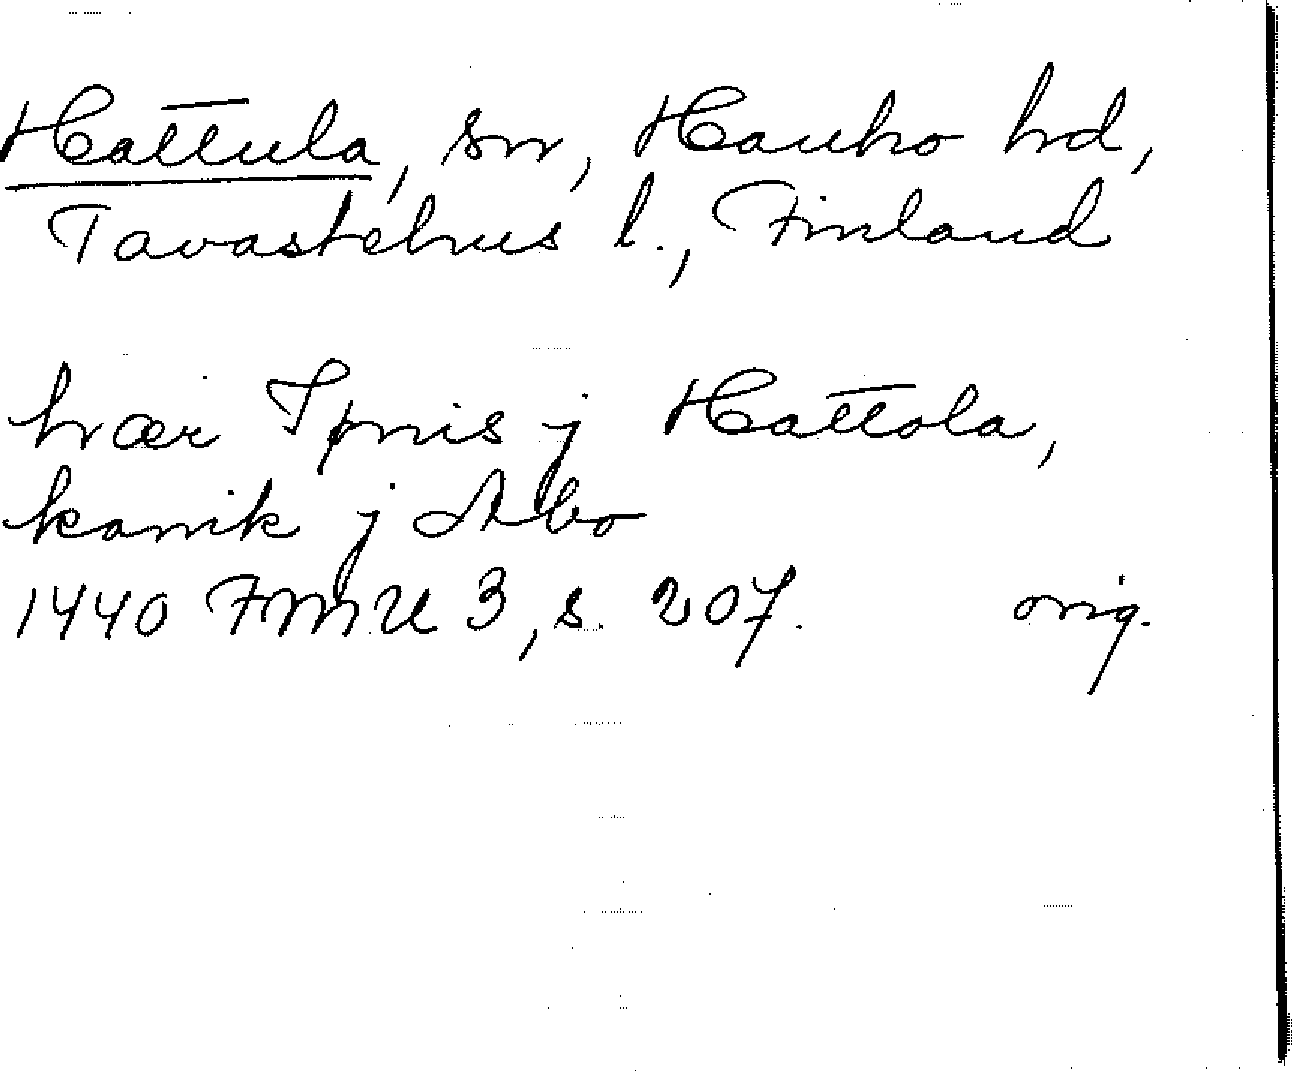 Hattula, sn, Hauho hd,
Tavastehus l., Finland
hær j Hattola,
kanik j Abo
1440 FMU 3, s. 207. orig.